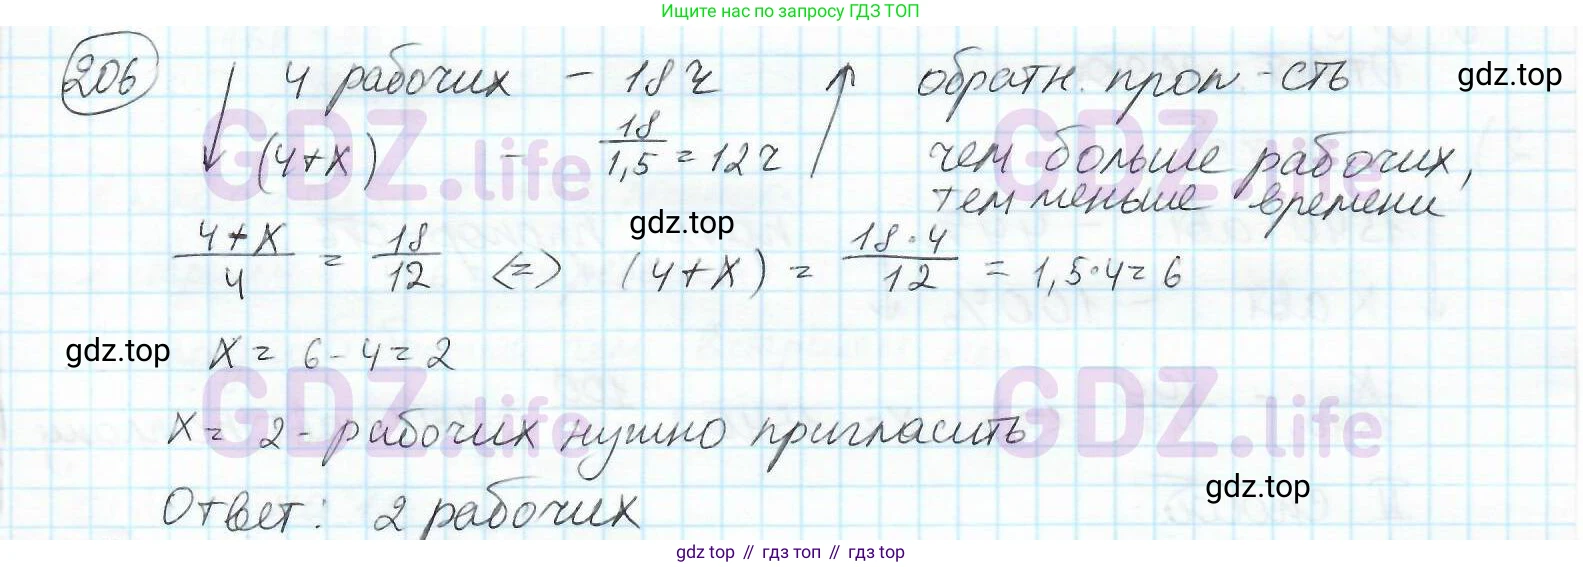 Ищите нас по запросу ГДЗ ТОП
206 4 рабочих - 18ч обратн. проп-сть
gdz.top
(4+x) - 18/1,5 = 12ч чем больше рабочих,
тем меньше времени
GDZ.life GDZ.life
gdz.top
(4+x)/4 = 18/12 <=> (4+x) = (18·4)/12 = 1,5·4=6
gdz.top
x = 6-4=2
GDZ.life GDZ.life
x = 2 - рабочих нужно пригласить
gdz.top
Ответ: 2 рабочих
gdz top // гдз топ // gdz top